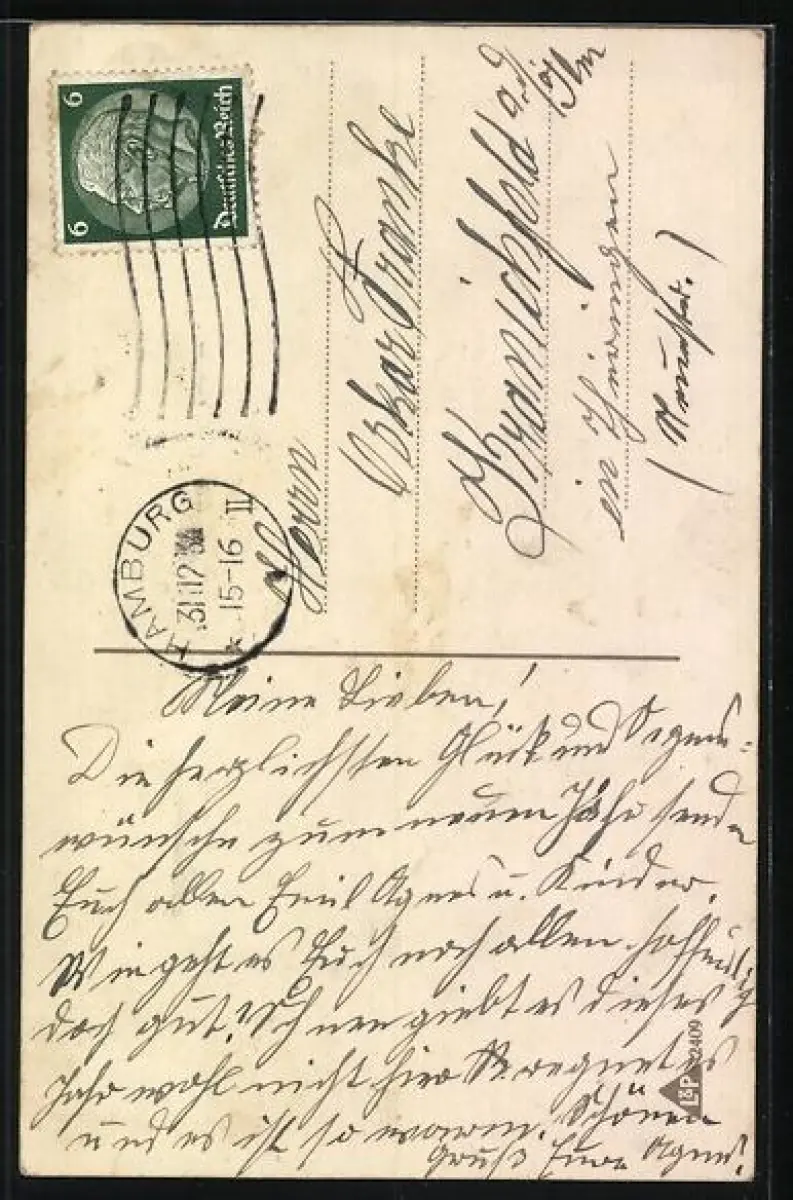 6
6
Deutsches Reich
HAMBURG
31.12.
15-16 II
Herrn
Oskar Franke
Kranichfeld a. d. Ilm
in Thüringen
Meine Lieben!
Die herzlichsten Glück und Segens-
wünsche zum neuen Jahr sende
Euch allen Emil Agnes u. Kinder.
Wie geht es Euch noch allen hoffentlich
doch gut. Schnee giebt es dieses
Jahr wohl nicht hier regnet es
und es ist so warm. Schönen
Gruß Eure Agnes.
L&P 2409